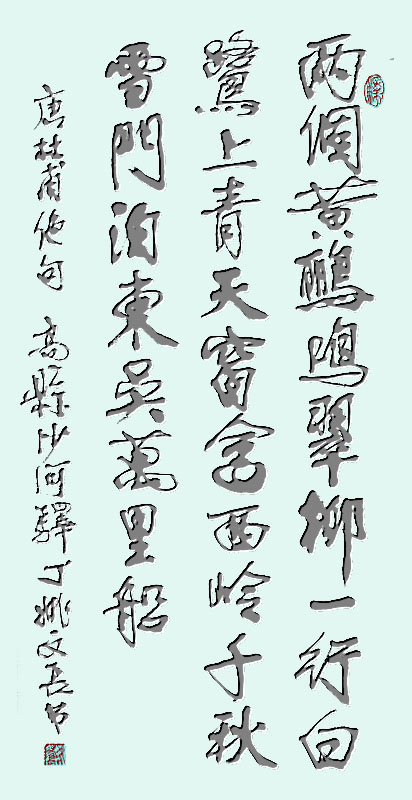 两個黄鸝鳴翠柳一行白
鷺上青天窗含西岭千秋
雪門泊東吳萬里船
唐杜甫佳句 高縣沙河驛丁姚文長书